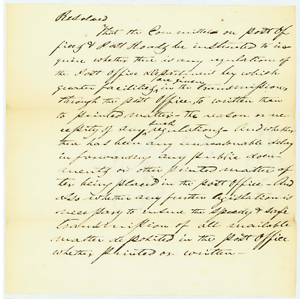 Resolved
That the Committee on post Of
fice & Post Roads be instructed to in
quire whether there is any regulation of
the Post Office department by which
greater facilities are given in the transmission
through the post Office, to written than
to printed matter - the reason or ne
cessity of any such regulations - And whether
there has been any unreasonable delay
in forwarding any public docu
ments or other printed matter af
ter being placed in the post Office - And
also whether any further legislation is
necessary to insure the speedy & safe
transmission of all mailable
matter deposited in the post Office
whether printed or written -